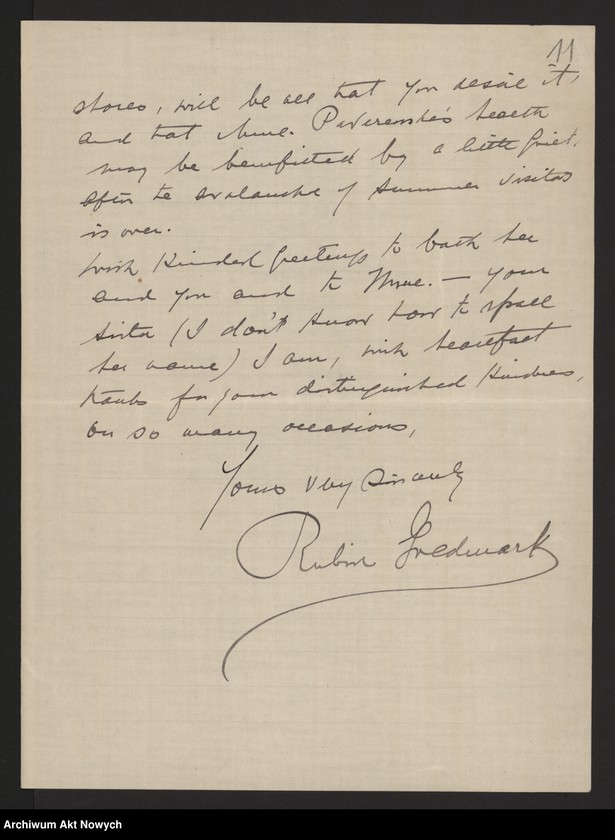 11
shores, will be all that you desire it,
and that Mme. Paderewska's health
may be benefitted by a little quiet,
after the avalanche of summer visitors
is over.
With kindest greetings to both her
and you and to Mme. — your
sister (I don't know how to spell
her name) I am, with heartfelt
thanks for your distinguished kindness,
on so many occasions,
Yours very sincerely
Rubin Goldmark
Archiwum Akt Nowych